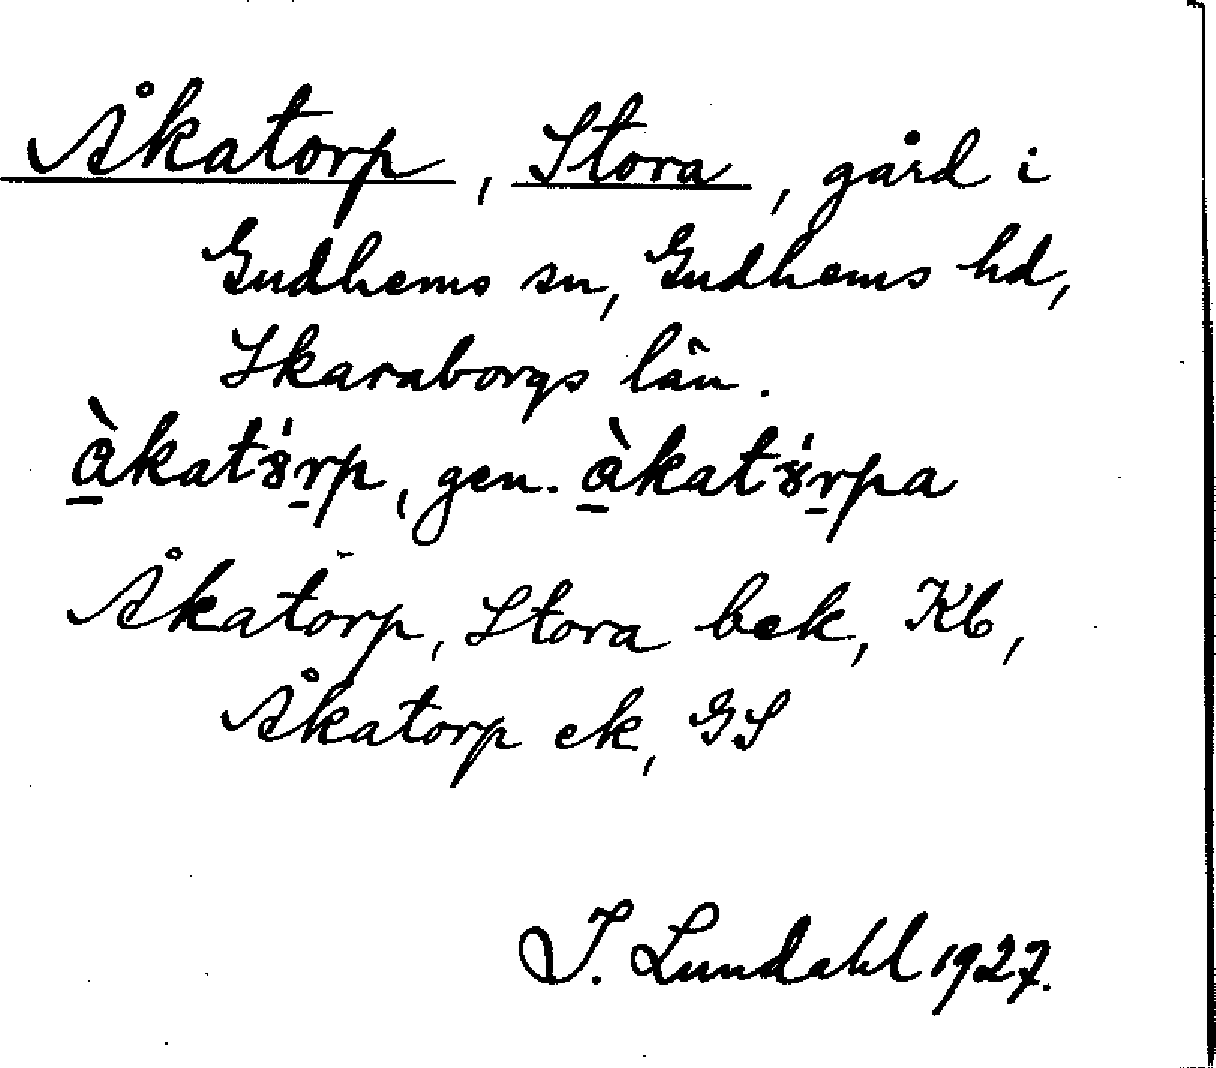 Åkatorp, Stora, gård i
Gudhems sn, Gudhems hd,
Skaraborgs län.
gen.
Åkatorp, Stora bek, Kb,
Åkatorp ek, GS
I. Lundahl 1927.